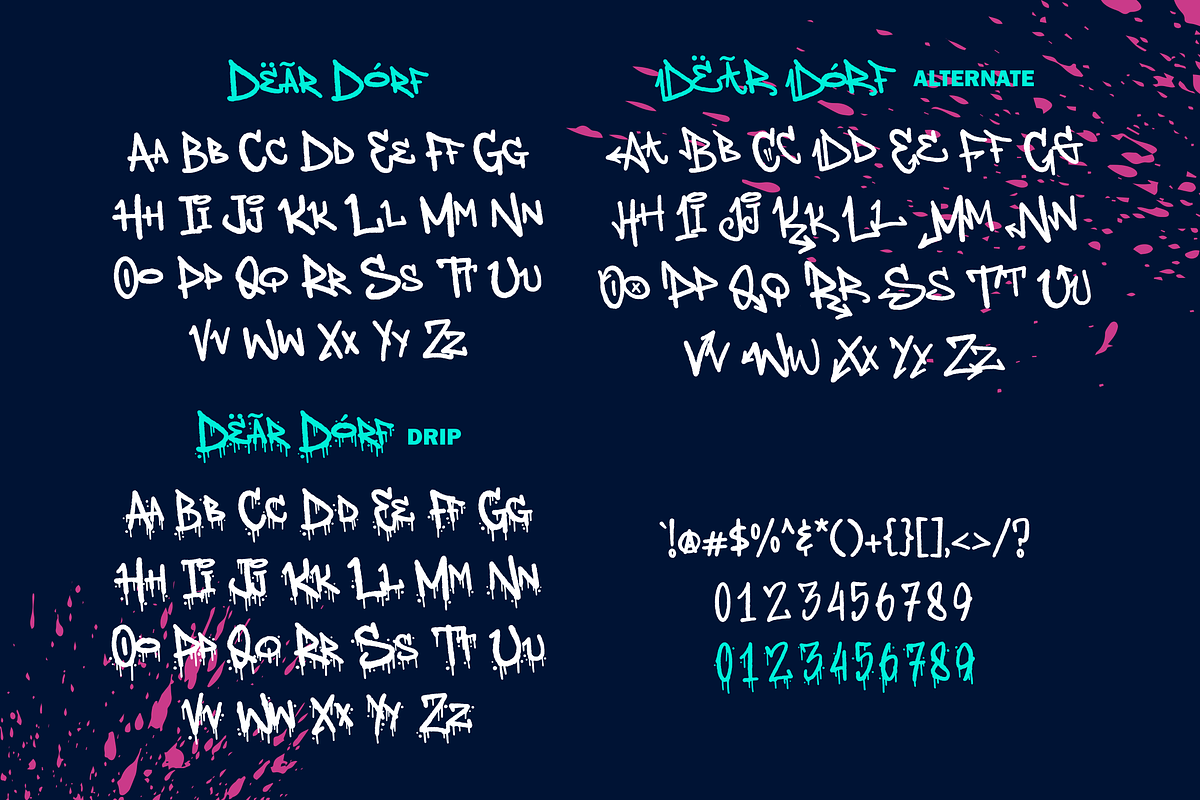 DËÃR DÓRF
Aa Bb Cc Dd Ee Ff Gg
Hh Ii Jj Kk Ll Mm Nn
Oo Pp Qq Rr Ss Tt Uu
Vv Ww Xx Yy Zz
DËÃR DÓRF ALTERNATE
Aa Bb Cc Dd Ee Ff Gg
Hh Ii Jj Kk Ll Mm Nn
Oo Pp Qq Rr Ss Tt Uu
Vv Ww Xx Yy Zz
DËÃR DÓRF DRIP
Aa Bb Cc Dd Ee Ff Gg
Hh Ii Jj Kk Ll Mm Nn
Oo Pp Qq Rr Ss Tt Uu
Vv Ww Xx Yy Zz
`!@#$%^&*()+{}[],<>/?
0123456789
0123456789